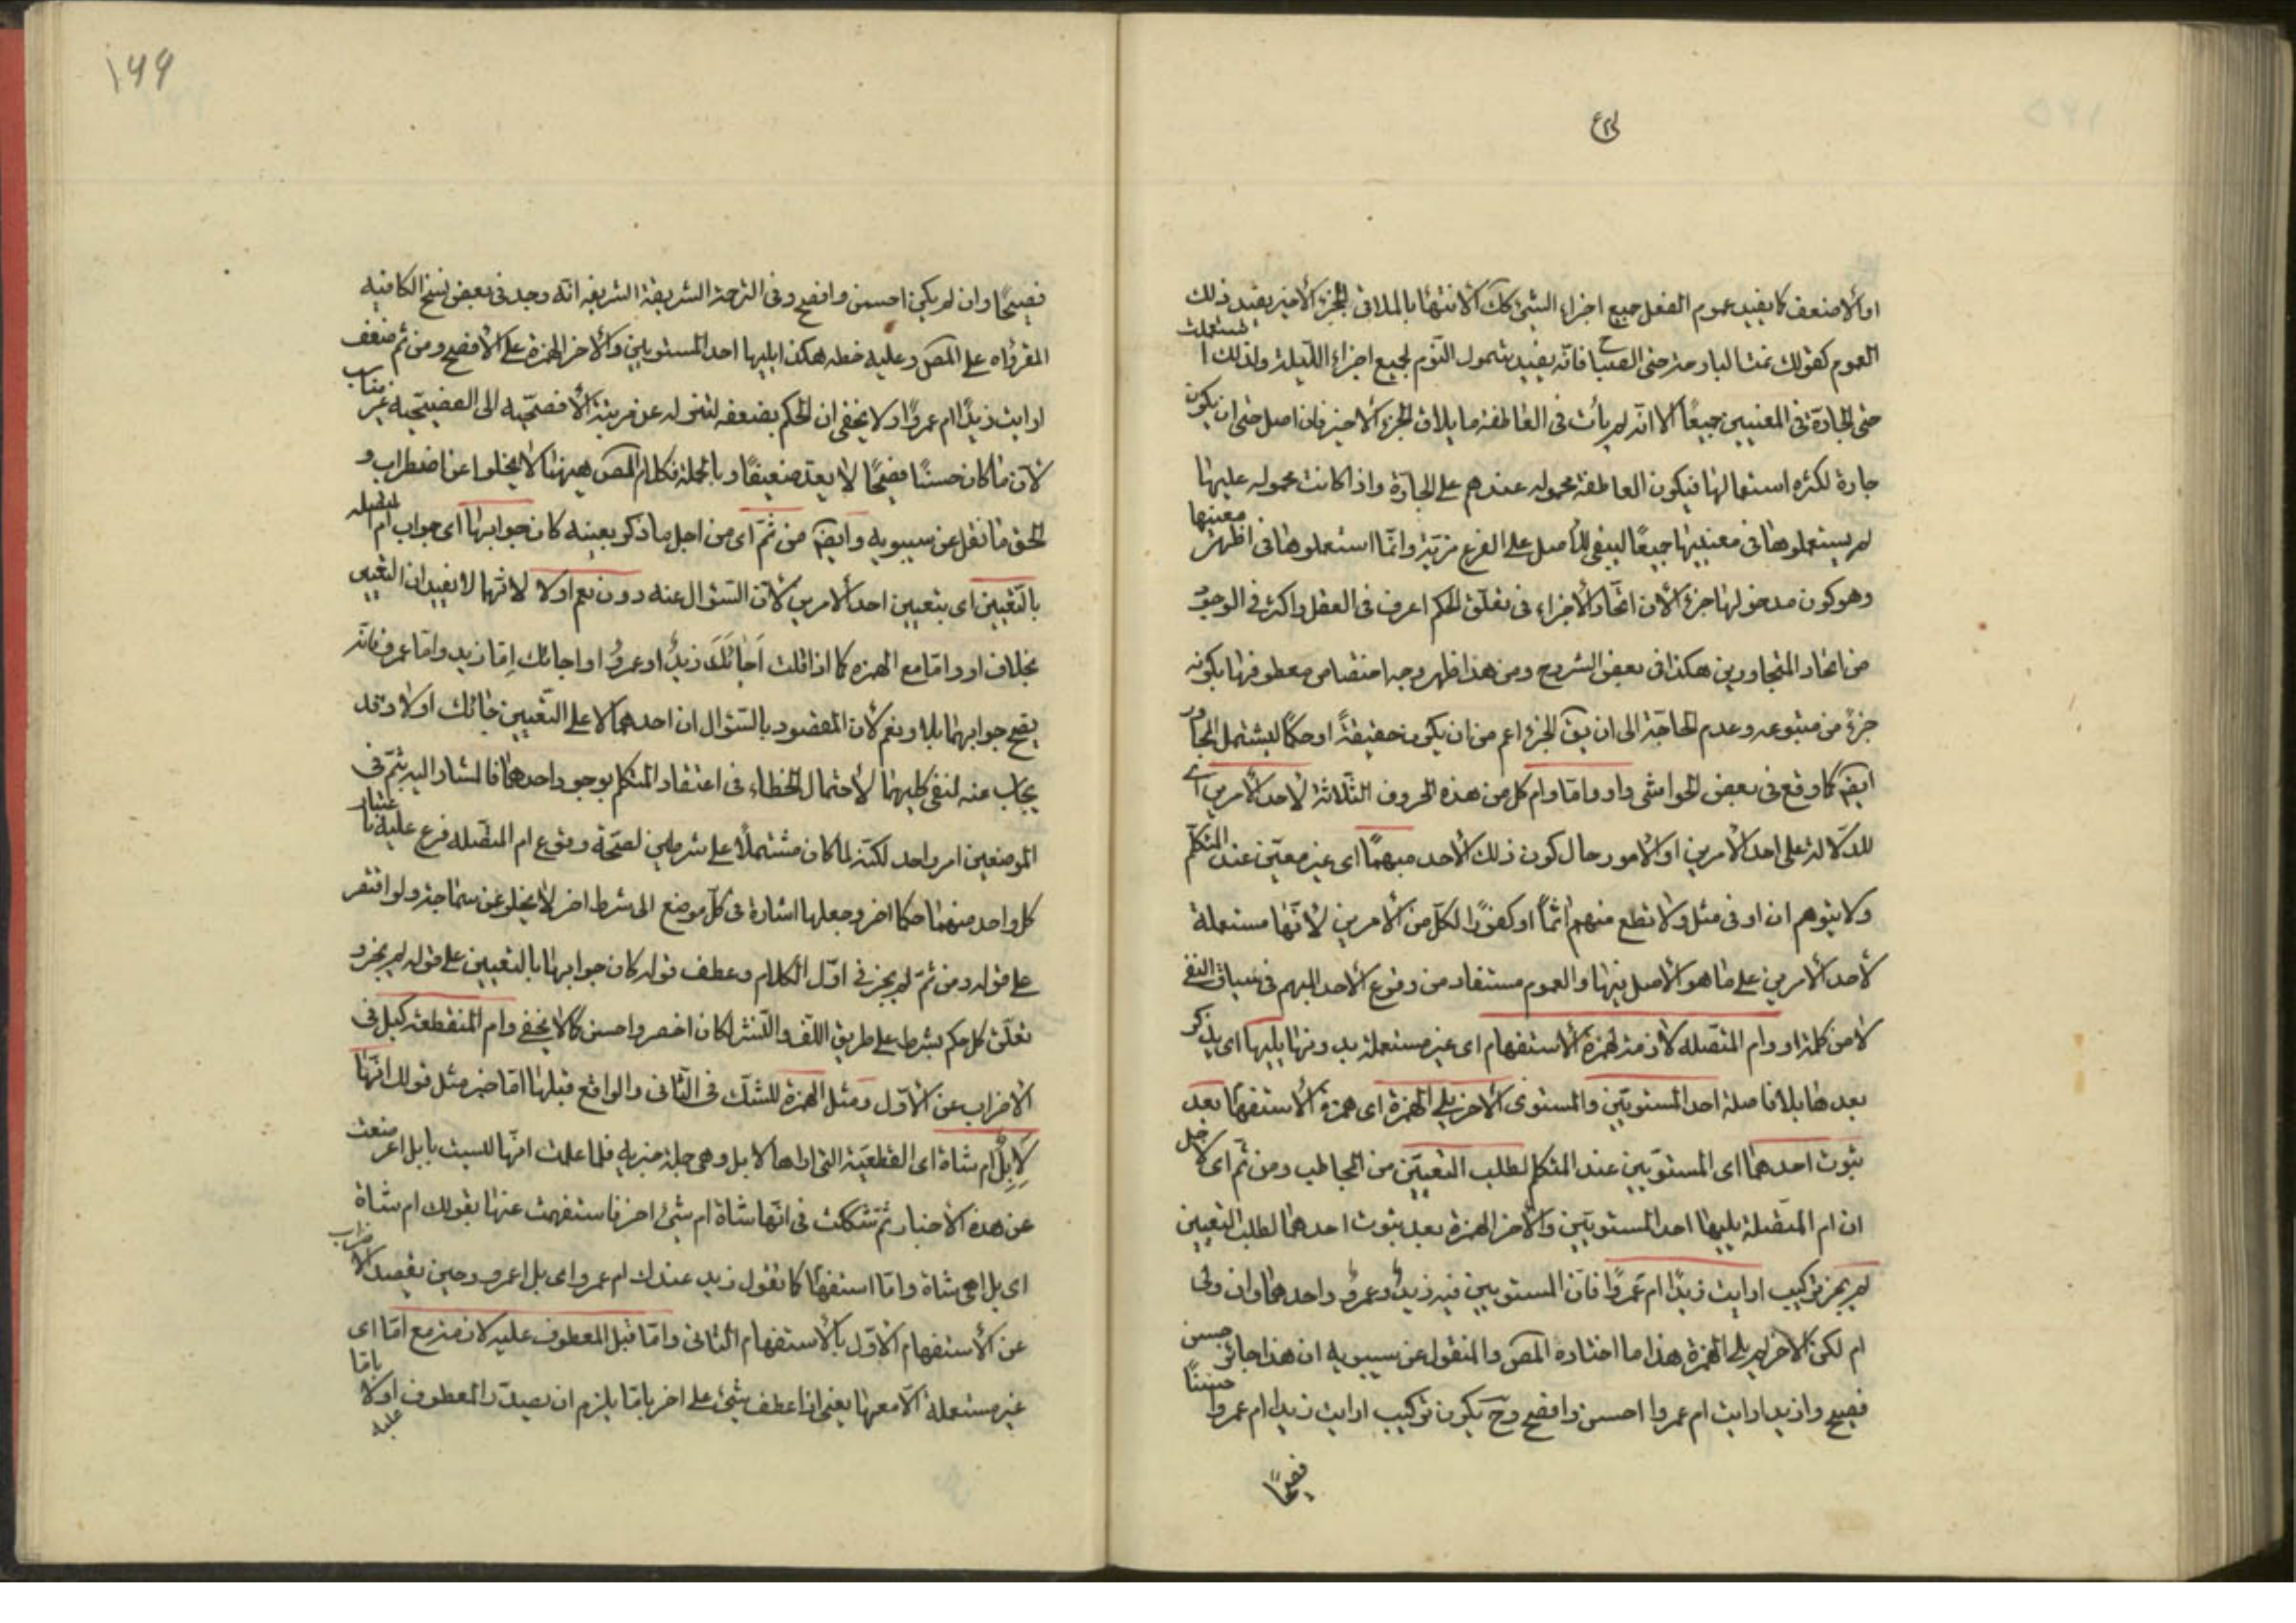 او الاضعف كما يفيد عموم الفعل جميع اجزاء الشئ كك الانتهاء بالملاقى الجزء الاخير يفيد ذلك
العموم كقولك نمت البارحة حتى الصباح فانه يفيد شمول النوم لجميع اجزاء الليلة ولذلك استعملت
حتى الجارة فى المعنيين جميعًا الا انه لم يأت فى العاطفة ما يلاقى الجزء الاخير فان اصل حتى ان يكون
جارة لكثرة استعمالها فيكون العاطفة محمولة عندهم على الجارة واذا كانت محمولة عليها
لم يستعملوها فى معنييها جميعًا ليبقى للأصل على الفرع مزيّة وانّما استعملوها فى اظهر معنييها
وهو كون مدخولها جزء لأن اتحاد الأجزاء فى تعلّق الحكم اعرف فى العقل واكثر فى الوجود
من اتحاد المتجاورين هكذا فى بعض الشروح ومن هذا ظهر وجه اختصاص معطوفها بكونه
جزءً من متبوعه وعدم الحاجة الى ان يقَ الجزء اعم من ان يكون حقيقةً او حكمًا ليشتمل المجاور
ايضَ كما وقع فى بعض الحواشى واو وامّا وام كل من هذه الحروف الثلاثة لأحد الأمرين اى
للدّلالة على احد الأمرين او الامور حال كون ذلك الأحد مبهمًا اى غير معيّن عند المتكلّم
ولا يتوهم ان او فى مثل ولا تطع منهم اثمًا او كفورًا لكلّ من الأمرين لأنّها مستعملة
لأحد الأمرين على ما هو الأصل فيها والعموم مستفاد من وقوع الأحد المبهم فى سياق النفى
لا من كلمة او وام المتّصله لازمة لهمزة الاستفهام اى غير مستعملة بدونها يليها اى يذكر
بعدها بلا فاصلة احد المستويين والمستوى الأخر يلى الهمزة اى همزة الاستفهام بعد
ثبوت احدهما اى المستويين عند المتكلم لطلب التعيين من المخاطب ومن ثم اى لاجل
ان ام المتصلة يليها احد المستويين والأخر الهمزة بعد ثبوت احدهما لطلب التعيين
لم يجز تركيب ارايت زيدًا ام عمروًا فان المستويين فيه زيدٌ وعمروٌ واحدهما وان ولى
ام لكن الأخر لم يلى الهمزة هذا ما اختاره المصَ والمنقول عن سيبويه ان هذا جائز حسن
فصيح وازيدا رايت ام عمروا احسن وافصح وح يكون تركيب ارايت زيدا ام عمروا حسنًا
فصيحًا
١٩٩
فصيحًا وان لم يكن احسن وافصح وفى الترجمة الشريفة الشريفيه انّه وجد فى بعض نسخ الكافيه
المقرؤاه على المصَ وعليه خطه هكذا يليها احد المستويين والأخر الهمزة على الأفصح ومن ثم ضعف
ارايت زيدًا ام عمروًا ولا يخفى ان الحكم بضعفه لتنزله عن مرتبة الأفصحيّه الى الفصيحيّه غير مناسب
لأن ما كان حسنًا فصيحًا لا يعدّ ضعيفًا وبالجملة فكلام المصَ ههنا لا يخلوا عن اضطراب و
الحق ما نقل عن سيبويه وايضَ من ثمّ اى من اجل ما ذكر بعينه كان جوابها اى جواب ام المتصله
بالتّعيين اى بتعيين احد الأمرين لأن السّئوال عنه دون نعم او لا لانّهما لا يفيدان التعيين
بخلاف او وامّا مع الهمزه كما اذا قلت اَجائَكَ زيدٌ او عمروٌ او اجائك اِمّا زيد وامّا عمرو فانّه
يصح جوابهما بلا ونعم لأن المقصود بالسّئوال ان احدهما لا على التّعيين جائك او لا وقد
يجاب عنه لنفى كليهما لأحتمال الخطاء فى اعتقاد المتكلم بوجود احدهما فالمشار اليه بثمّ فى
الموضعين امر واحد لكنّه لما كان مشتملًا على شرطين لصحّة وقوع ام المتّصله فرع عليه باعتبار
كل واحد منهما حكما اخر وجعلها اشارة فى كلّ موضع الى شرط اخر لا يخلو عن سماجة ولو اقتصر
على قوله ومن ثمّ لم يجز فى اوّل الكلام وعطف قوله كان جوابها بالتعيين على قوله لم يجز و
تعلّق كل حكم بشرط على طريق اللّف والنّشر لكان اخصر واحسن كما لا يخفى وام المنقطعه كبل فى
الأضراب عن الأوّل ومثل الهمزة للشكّ فى الثّانى والواقع قبلها امّا خبر مثل قولك انّها
لَأِبِلٌ ام شاة اى القطعية التى اراها لابل وهى جملة خبريه فلما علمت انّها ليست بابل اعرضت
عن هذه الأخبار ثم شككت فى انّها شاة ام شئ اخر فاستفهمت عنها بقولك ام شاة
اى بل اهى شاة وامّا استفهامً كما تقول ازيد عندك ام عمرو اى بل اعمرو وحين تقصد الاضراب
عن الأستفهام الأوّل بالأستفهام الثانى وامّا قبل المعطوف عليه لازمة مع امّا اى
غير مستعملة الّا معها يعنى اذا عطف شئ على اخر بامّا يلزم ان يصدّر المعطوف عليه اولا بامّا